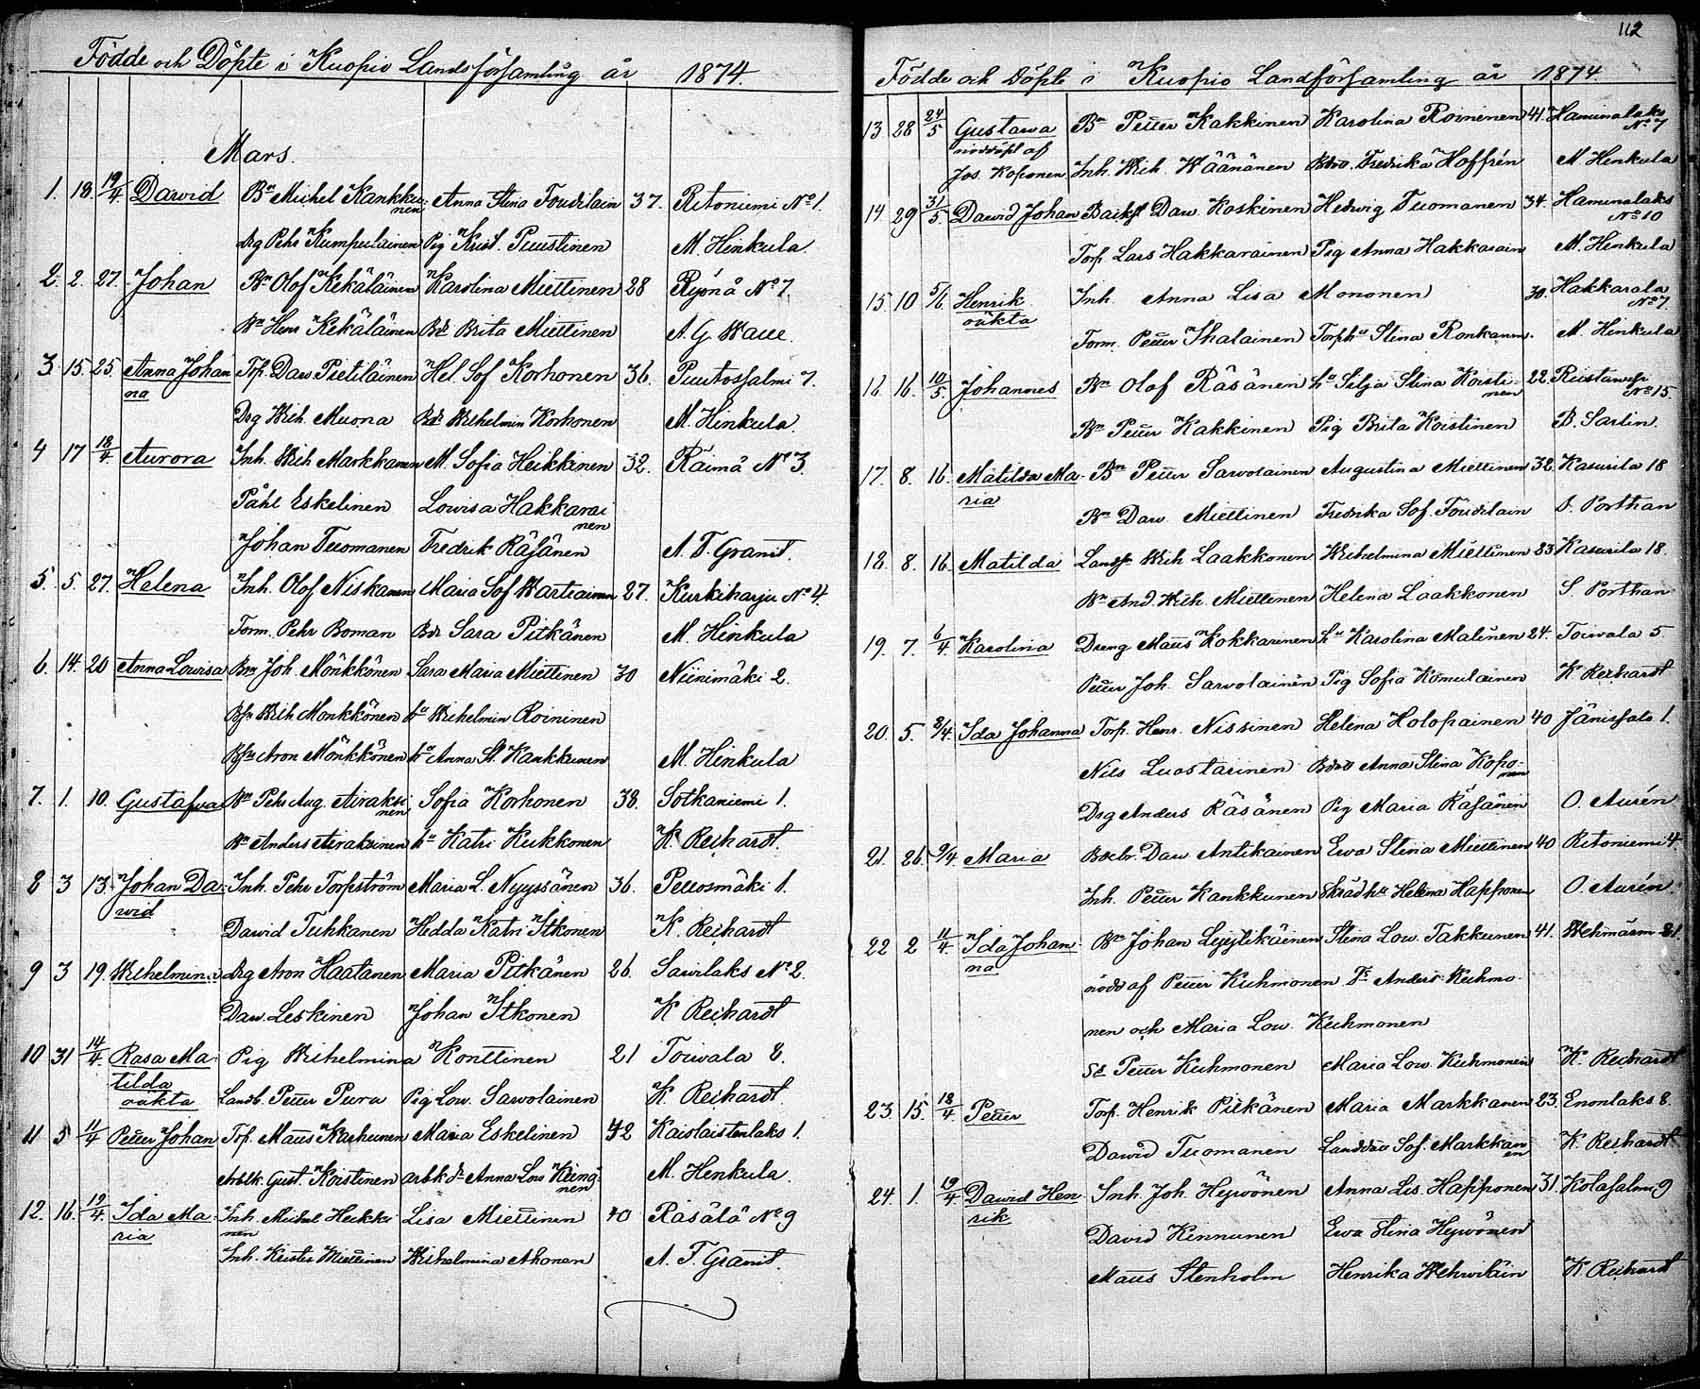 Födde och Döpte i Kuopio Landsförsamling år 1874.
Mars.
1. 18. 19/4 Dawid Bn Michel Kankku- Anna Stina Foudilain 37. Ritoniemi No 1.
nen
Drg Pehr Kumpulainen Pig Krist. Puustinen M. Hinkula.
2. 2. 27. Johan Bn Olof Kekäläinen Karolina Miettinen 28 Ryönä No 7.
Bn Henr Kekäläinen Bdr Brita Miettinen A. G. Walle.
3. 15. 25. Anna Johan Trp. Daw Pietiläinen Hel. Sof Korhonen 36. Puutossalmi 7.
na
Drg Wilh. Muona Bdr Wilhelmin Korhonen M. Hinkula.
4 17 18/4 Aurora Inh. Wilh Markkanen M. Sofia Heikkinen 32. Räimä No 3.
Påhl Eskelinen Lowisa Hakkarai
nen
Johan Tuomanen Fredrik Räsänen A. F. Granit.
5. 5. 27. Helena Inh. Olof Niskanen Maria Sof Wartiainen 27. Kurkiharju No 4.
Torm. Pehr Boman Bdr Sara Pitkänen M. Hinkula
6. 14. 20 Anna Lowisa Bn Joh. Mönkkönen Sara Maria Miettinen 30 Niinimäki 2.
Bsn Wilh Monkkönen ha Wilhelmin Roininen
Bsn Aron Mönkkönen ha Anna St. Kankkunen M. Hinkula
7. 1. 10. Gustafva Bn Pehr Aug. Airaksi Sofia Korhonen 38. Sotkaniemi 1.
nen
Bn Anders Airaksinen ha Katri Kukkonen K. Reihardt.
8 3 13. Johan Da- Inh. Pehr Torpström Maria L. Nyyssänen 36. Pellosmäki 1.
wid
Dawid Tuhkanen Hedda Katri Itkonen K. Reihardt
9 3 19. Wilhelmina Drg Aron Haatanen Maria Pitkänen 26. Sawilaks No 2.
Daw. Leskinen Johan Itkonen K Reihardt
10 31 14/4 Rosa Ma- Pig Wilhelmina Konttinen 21 Toivala 8.
tilda
oäkta Landb. Petter Pura Pig Low. Sawolainen K. Reihardt.
11 5 11/4 Petter Johan Trp. Matts Karhunen Maria Eskelinen 42 Kaislastenlaks 1.
Arblk. Gust. Koistinen arbk dr Anna Low
nen M. Henkula.
12. 16. 12/4 Ida Ma- Inh. Michel Heikki Lisa Miettinen 40 Räsälä No 9
ria nen
Inh. Krister Miettinen Wilhelmina Ahonen A. F. Granit.
112
Födde och Döpte i Kuopio Landförsamling år 1874
13 28 24/5 Gustawa Bn Petter Kakkinen Karolina Roininen 41. Haminalaks
nöddöpt af No 7
Jos. Koponen Inh. Wilh. Wäänänen Bdro. Fredrika Hoffrén M Henkula
14 29 31/5 Dawid Johan Backst Daw. Koskinen Hedwig Tuomanen 34. Haminalaks
No 10
Torp. Lars Hakkarainen Pig Anna Hakkarain M. Hinkula
15 10 5/6 Henrik Inh. Anna Lisa Mononen 30. Hakkarala
oäkta No 7.
Torm. Petter Ihalainen Torph Stina Ronkanen. M. Hinkula
16 16. 10/5. Johannes Bn Olof Räsänen ha Silja Stina Koisti- 22. Riistawesi
nen No 15.
Bn Petter Kakkinen Pig Brita Koistinen B. Sarlin.
17. 8. 16. Matilda Ma- Bn Petter Sawolainen Augustina Miettinen 32. Kasurila 18
ria
Bn Daw Miettinen Fredrika Sof. Foudilain S. Porthan
18. 8. 16. Matilda Landb. Wilh Laakkonen Wilhelmina Miettinen 23. Kasurila 18.
Bn And. Wilh. Miettinen Helena Laakkonen S. Porthan
19. 7. 6/4. Karolina Dreng Matts Kokkarinen ha Karolina Malinen 24. Toivala 5
Petter Joh. Sawolainen Pig Sofia Komulainen K Reihardt
20. 5. 8/4. Ida Johanna Torp. Henr. Nissinen Helena Holopainen 40 Jänissalo 1.
Nils Luostarinen Bdro Anna Stina Kopo-
nen
Drg Anders Räsänen Pig Maria Räsänen O. Aurén
21. 26. 9/4. Maria Bdebr. Daw Antikainen Ewa Stina Miettinen 40 Ritoniemi 4.
Inh. Petter Kankkunen Skrädh Helena Happonen O. Aurén.
22 2 11/4. Ida Johan- Bn Johan Lyytikäinen Stina Low. Takkunen 41. Wehmasm 21.
na
nödd af Petter Kuhmonen S. Anders Kuhmo-
nen och Maria Low. Kuhmonen
Sd Petter Kuhmonen Maria Low. Kuhmonen K. Reihardt
23. 15. 18/4 Petter Torp. Henrik Pitkänen Maria Markkanen 23. Enonlaks 8
Dawid Tuomanen Landdro Sof. Markkan K. Reihardt
en
24. 1. 19/4 Dawid Hen Inh. Joh. Heywönen Anna Lis. Happonen 31. Kotasalmi 9
rik
David Kinnunen Ewa Stina Heywönen
Matts Stenholm Henrika Wehwiläin K Reihardt